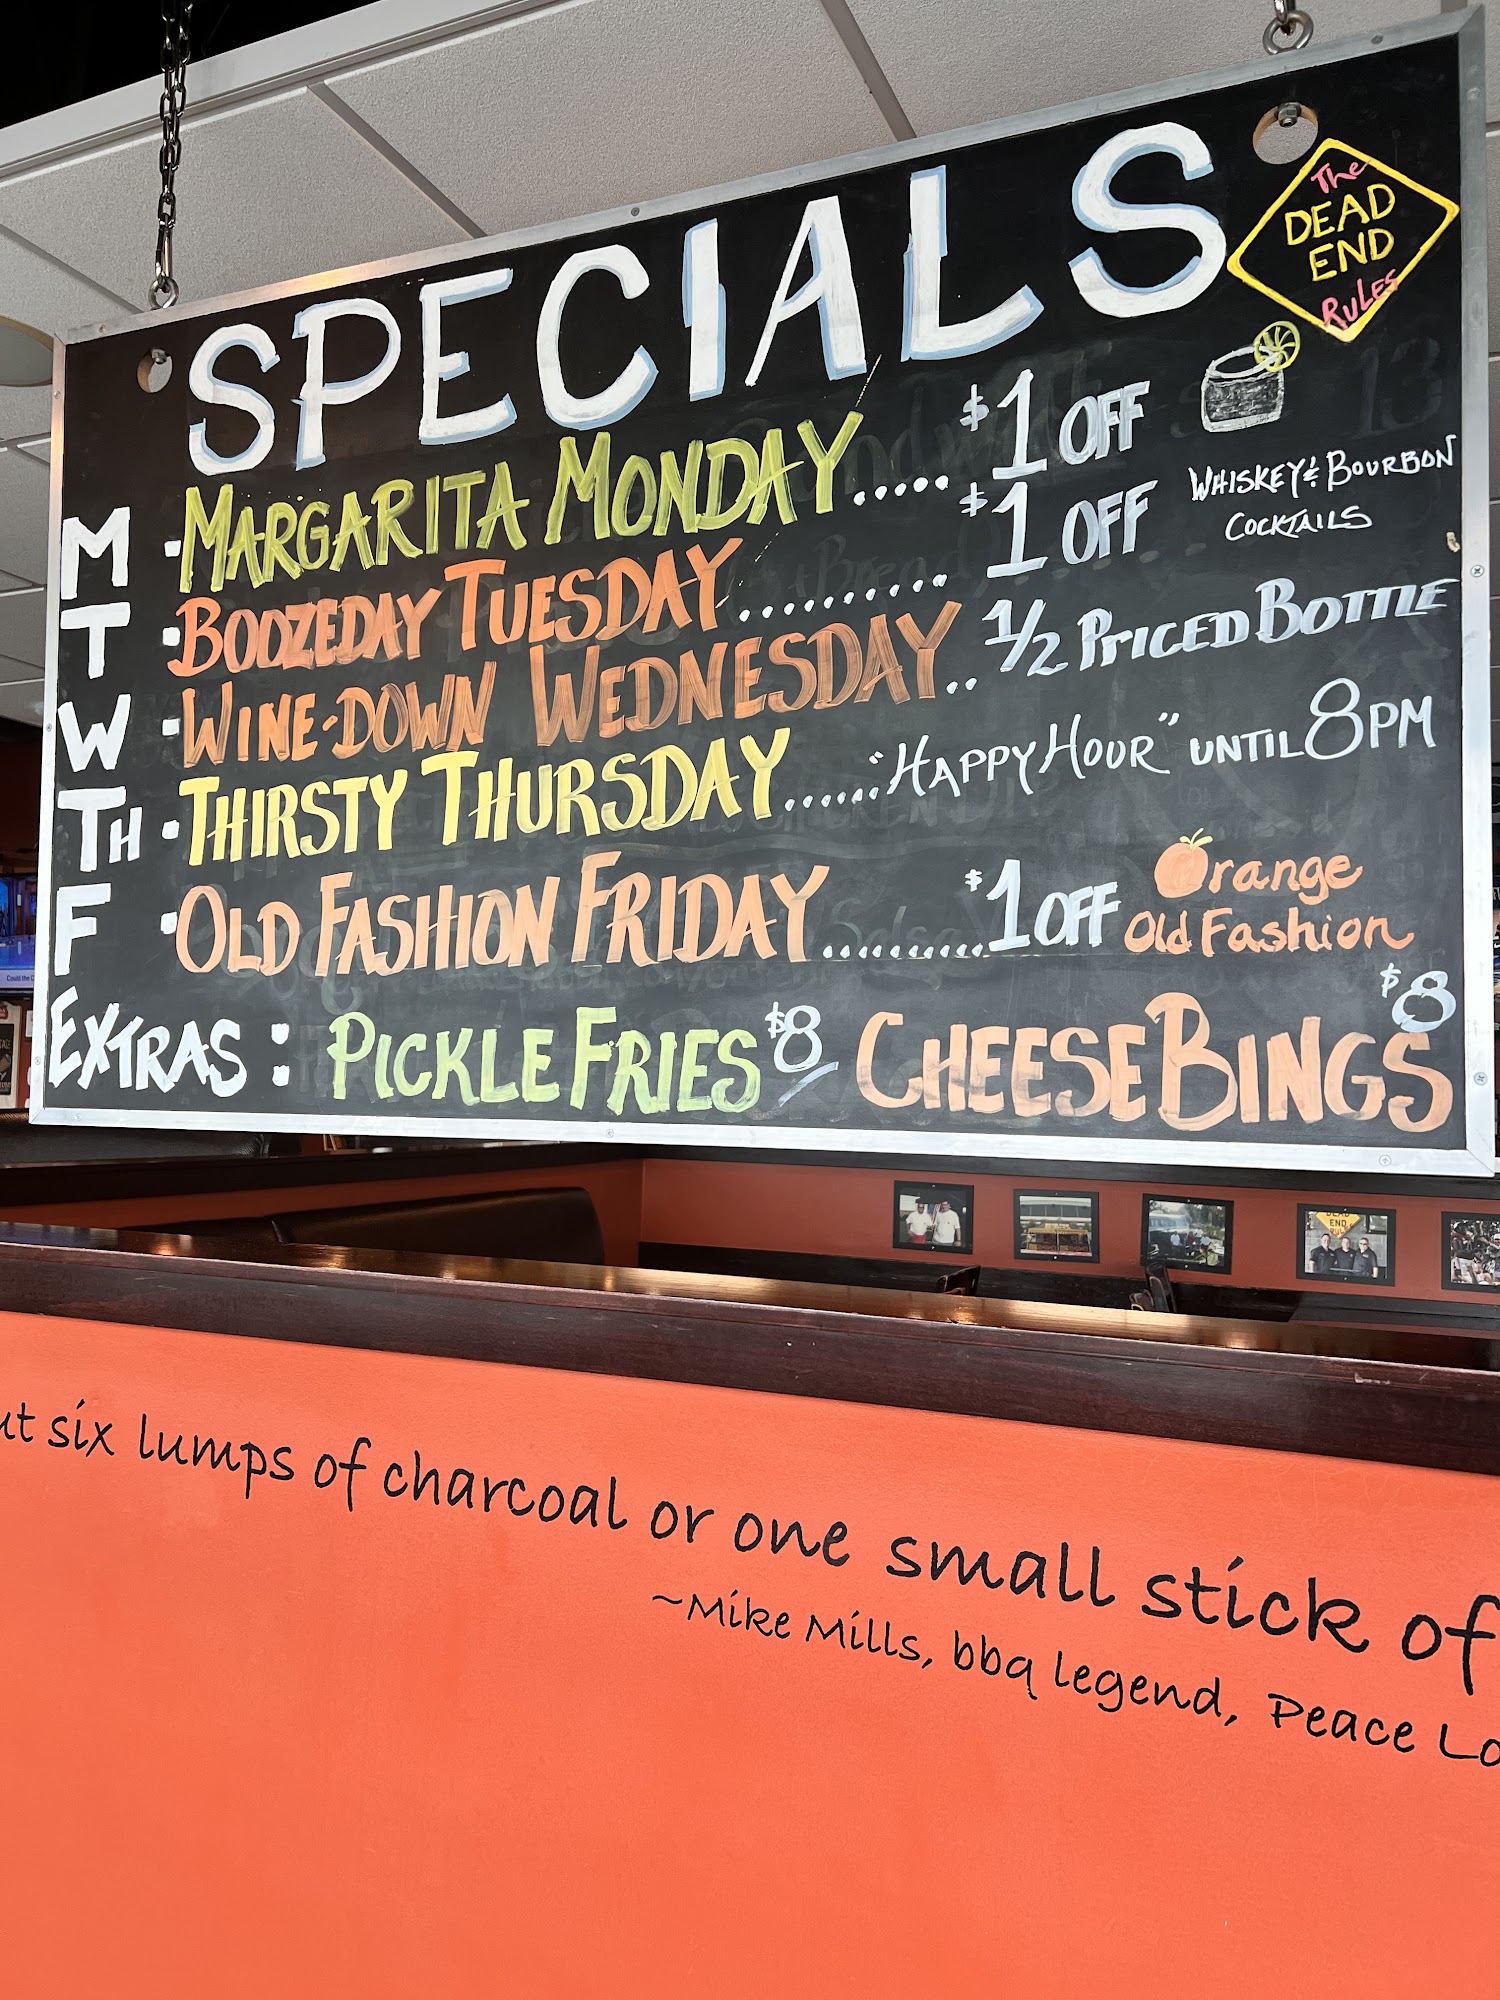 SPECIALS
The
DEAD
END
RULES
M • MARGARITA MONDAY..... $1 OFF
T • BOOZEDAY TUESDAY.......... $1 OFF WHISKEY & BOURBON
COCKTAILS
W • WINE-DOWN WEDNESDAY.. 1/2 PRICED BOTTLE
TH • THIRSTY THURSDAY...... "HAPPY HOUR" UNTIL 8PM
F • OLD FASHION FRIDAY.......... $1 OFF Orange
Old Fashion
EXTRAS: PICKLE FRIES $8 CHEESE BINGS $8
six lumps of charcoal or one small stick of
~Mike Mills, bbq legend, Peace